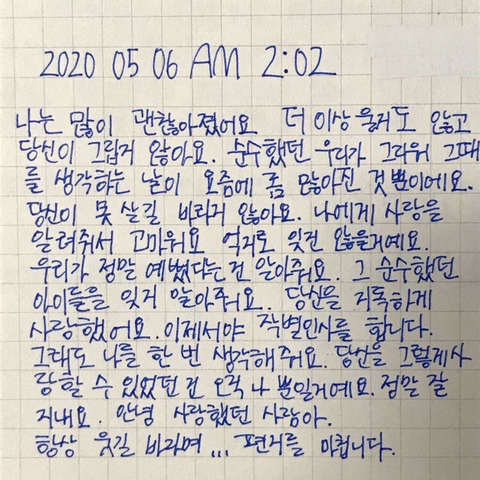 2020 05 06 AM 2:02
나는 많이 괜찮아졌어요 더 이상 울지도 않고
당신이 그립지 않아요. 순수했던 우리가 그리워 그때
를 생각하는 날이 요즘에 좀 많아진 것 뿐이에요.
당신이 못 살길 바라지 않아요. 나에게 사랑을
알려줘서 고마워요 억지로 잊진 않을거예요.
우리가 정말 예뻤다는건 알아줘요. 그 순수했던
아이들을 잊지 말아줘요. 당신을 지독하게
사랑했어요. 이제서야 작별인사를 합니다.
그래도 나를 한 번 생각해줘요. 당신을 그렇게 사
랑할 수 있었던 건 오직 나 뿐일거예요. 정말 잘
지내요. 안녕 사랑했던 사람아.
항상 웃길 바라며... 편지를 마칩니다.